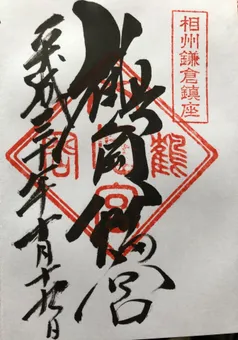 相州鎌倉鎮座
鶴岡八幡宮
鶴岡八幡宮
平成三十年十月十九日